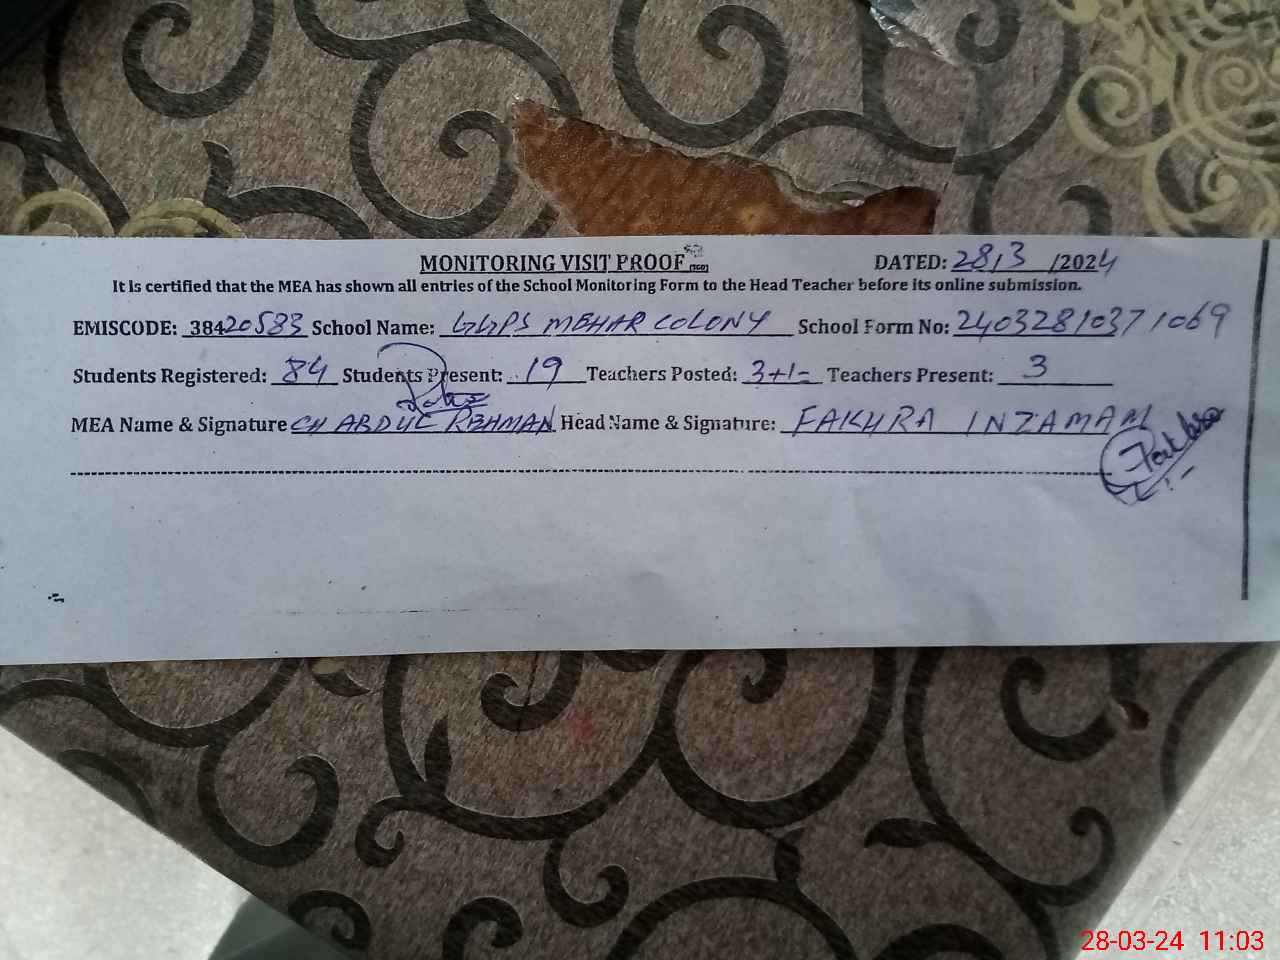 MONITORING VISIT PROOF DATED: 28/3/2024
It is certified that the MEA has shown all entries of the School Monitoring Form to the Head Teacher before its online submission.
EMISCODE: 38420583 School Name: GGPS MEHAR COLONY School Form No: 24032810371069
Students Registered: 84 Students Present: 19 Teachers Posted: 3+1= Teachers Present: 3
MEA Name & Signature CH ABDUL REHMAN Head Name & Signature: FAKHRA INZAMAM
28-03-24 11:03